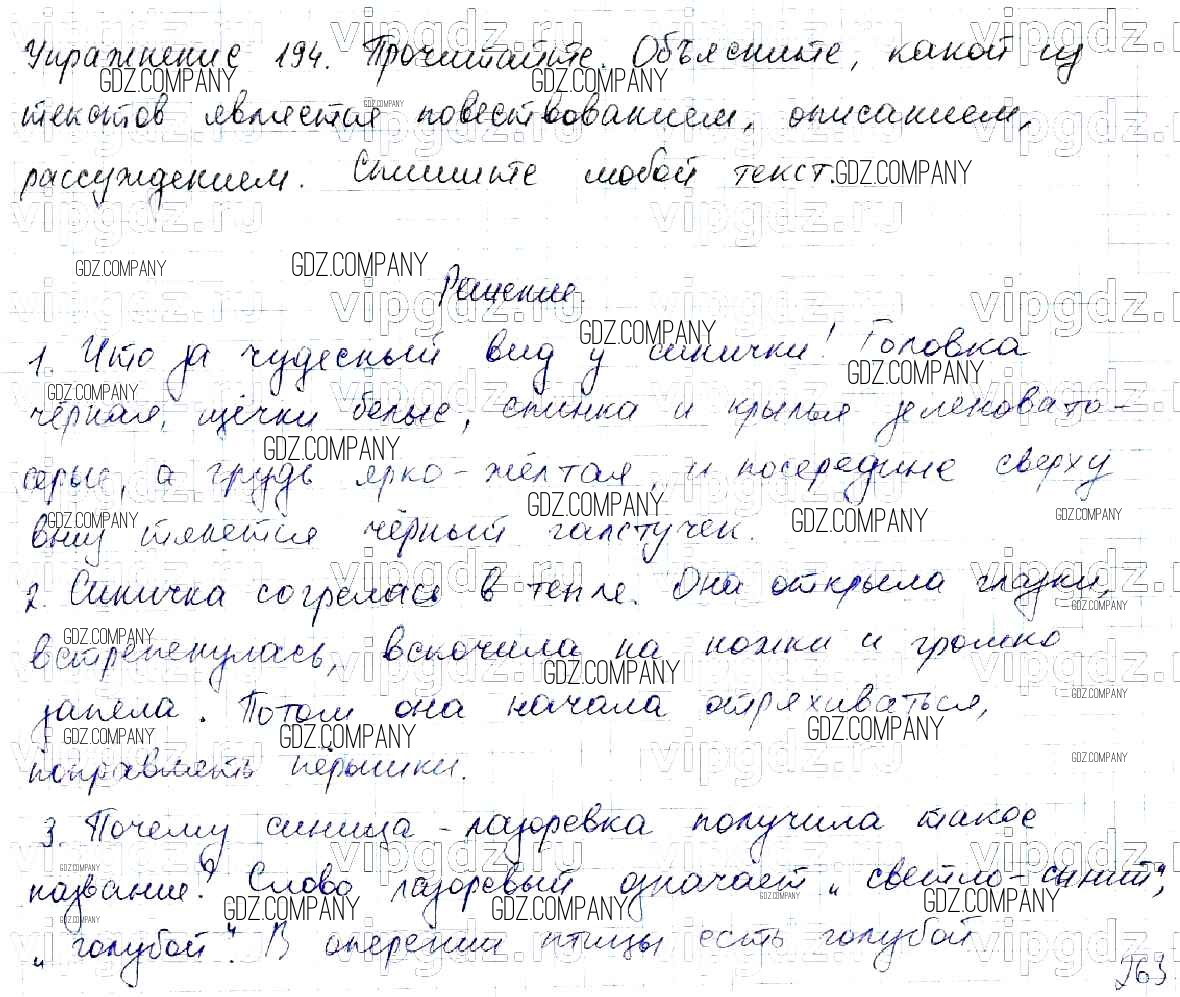 Упражнение 194. Прочитайте. Объясните, какой из
текстов является повествованием, описанием,
рассуждением. Спишите любой текст.
Решение.
1. Что за чудесный вид у синички! Головка
чёрная, щёчки белые, спинка и крылья зеленовато-
серые, а грудь ярко-жёлтая, и посередине сверху
вниз тянется чёрный галстучек.
2. Синичка согрелась в тепле. Она открыла глазки,
встрепенулась, вскочила на ножки и громко
запела. Потом она начала отряхиваться,
поправлять пёрышки.
3. Почему синица-лазоревка получила такое
название? Слово лазоревый означает „светло-синий",
„голубой". В оперении птицы есть голубой
GDZ.COMPANY
vipgdz.ru